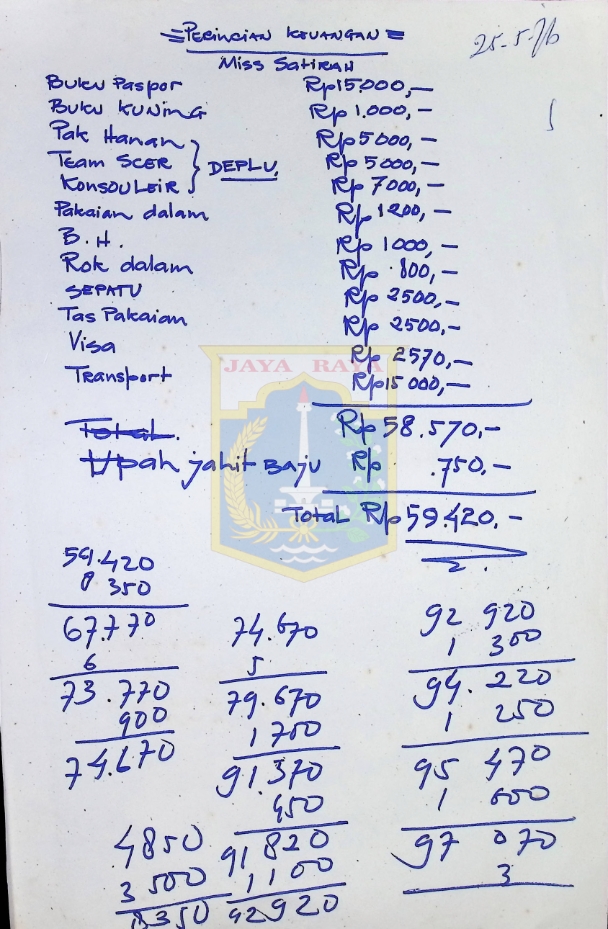 =Perincian Keuangan=
25-5-76
Miss Satirah
Buku Paspor Rp15.000,—
Buku Kuning Rp 1.000,—
Pak Hanan Rp 5000,—
Team SCER } DEPLU. Rp 5000,—
Konsouleir Rp 7000,—
Pakaian dalam Rp 1200,—
B.H. Rp 1000,—
Rok dalam Rp 800,—
SEPATU Rp 2500,—
Tas Pakaian Rp 2500,—
Visa Rp 2570,—
Transport Rp15 000,—
JAYA RAYA
Total. Rp 58.570,-
Upah jahit Baju Rp .750,—
Total Rp 59.420,-
59.420
8 350
67.770
6
73.770
900
74.670
4850
3 500
8350
74.670
5
79.670
1 700
91.370
450
91 820
1 100
92920
92 920
1 300
94.220
1 250
95 470
1 600
97 070
3